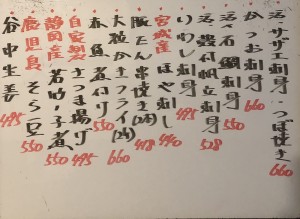 活・サザエ刺身・つぼ焼き 660
かつお刺身 550
活・石鯛刺身 550
活殻付帆立刺身 528
いわし刺身 495
宮城産 ほや刺し 440
豚とん串焼き(2本) 418
大粒かきフライ(2ヶ) 660
赤魚煮付け 550
自家製 さつま揚げ 495
静岡産 若竹子煮 550
鹿児島 そら豆 550
谷中生姜 495